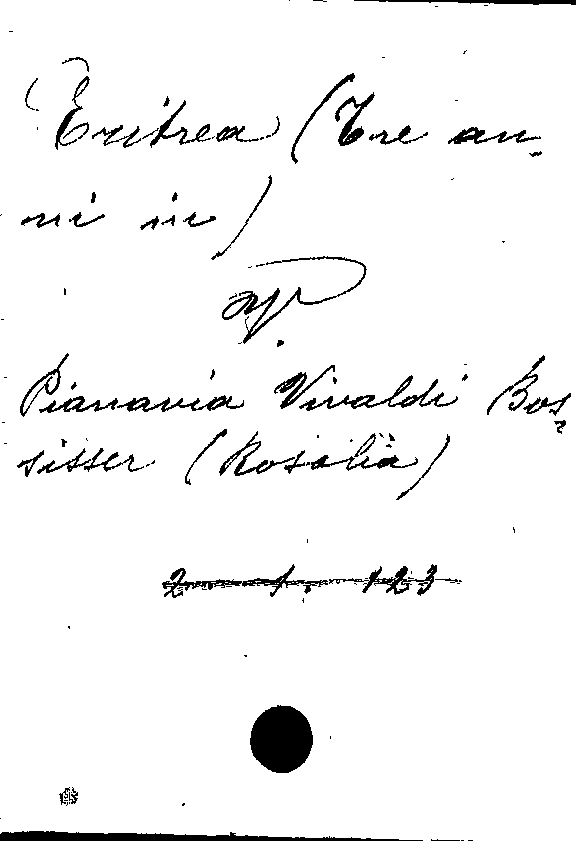 Eritrea (Tre an-
ni in)
Pianavia Vivaldi Bos-
sisser (Rosalia)
2. 1. 123